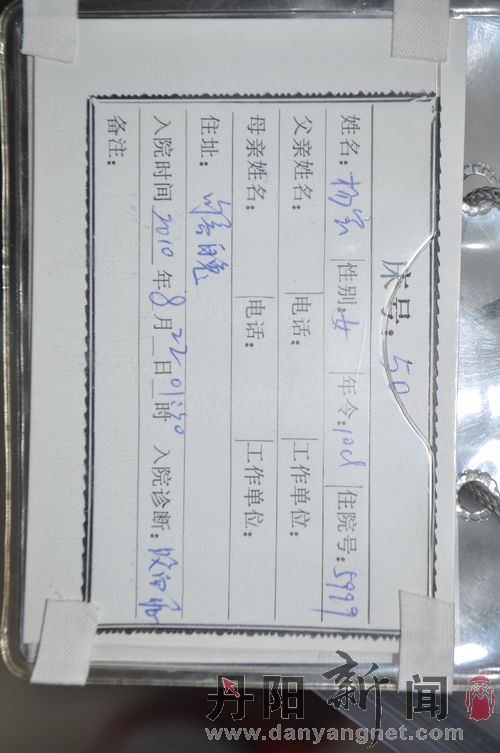 床号：50
姓名：杨宝 性别：女 年令：10d 住院号：5999
父亲姓名： 电话： 工作单位：
母亲姓名： 电话： 工作单位：
住址：
入院时间 2010 年 8 月 22 日 时 入院诊断：
备注：
丹阳新闻
www.danyangnet.com